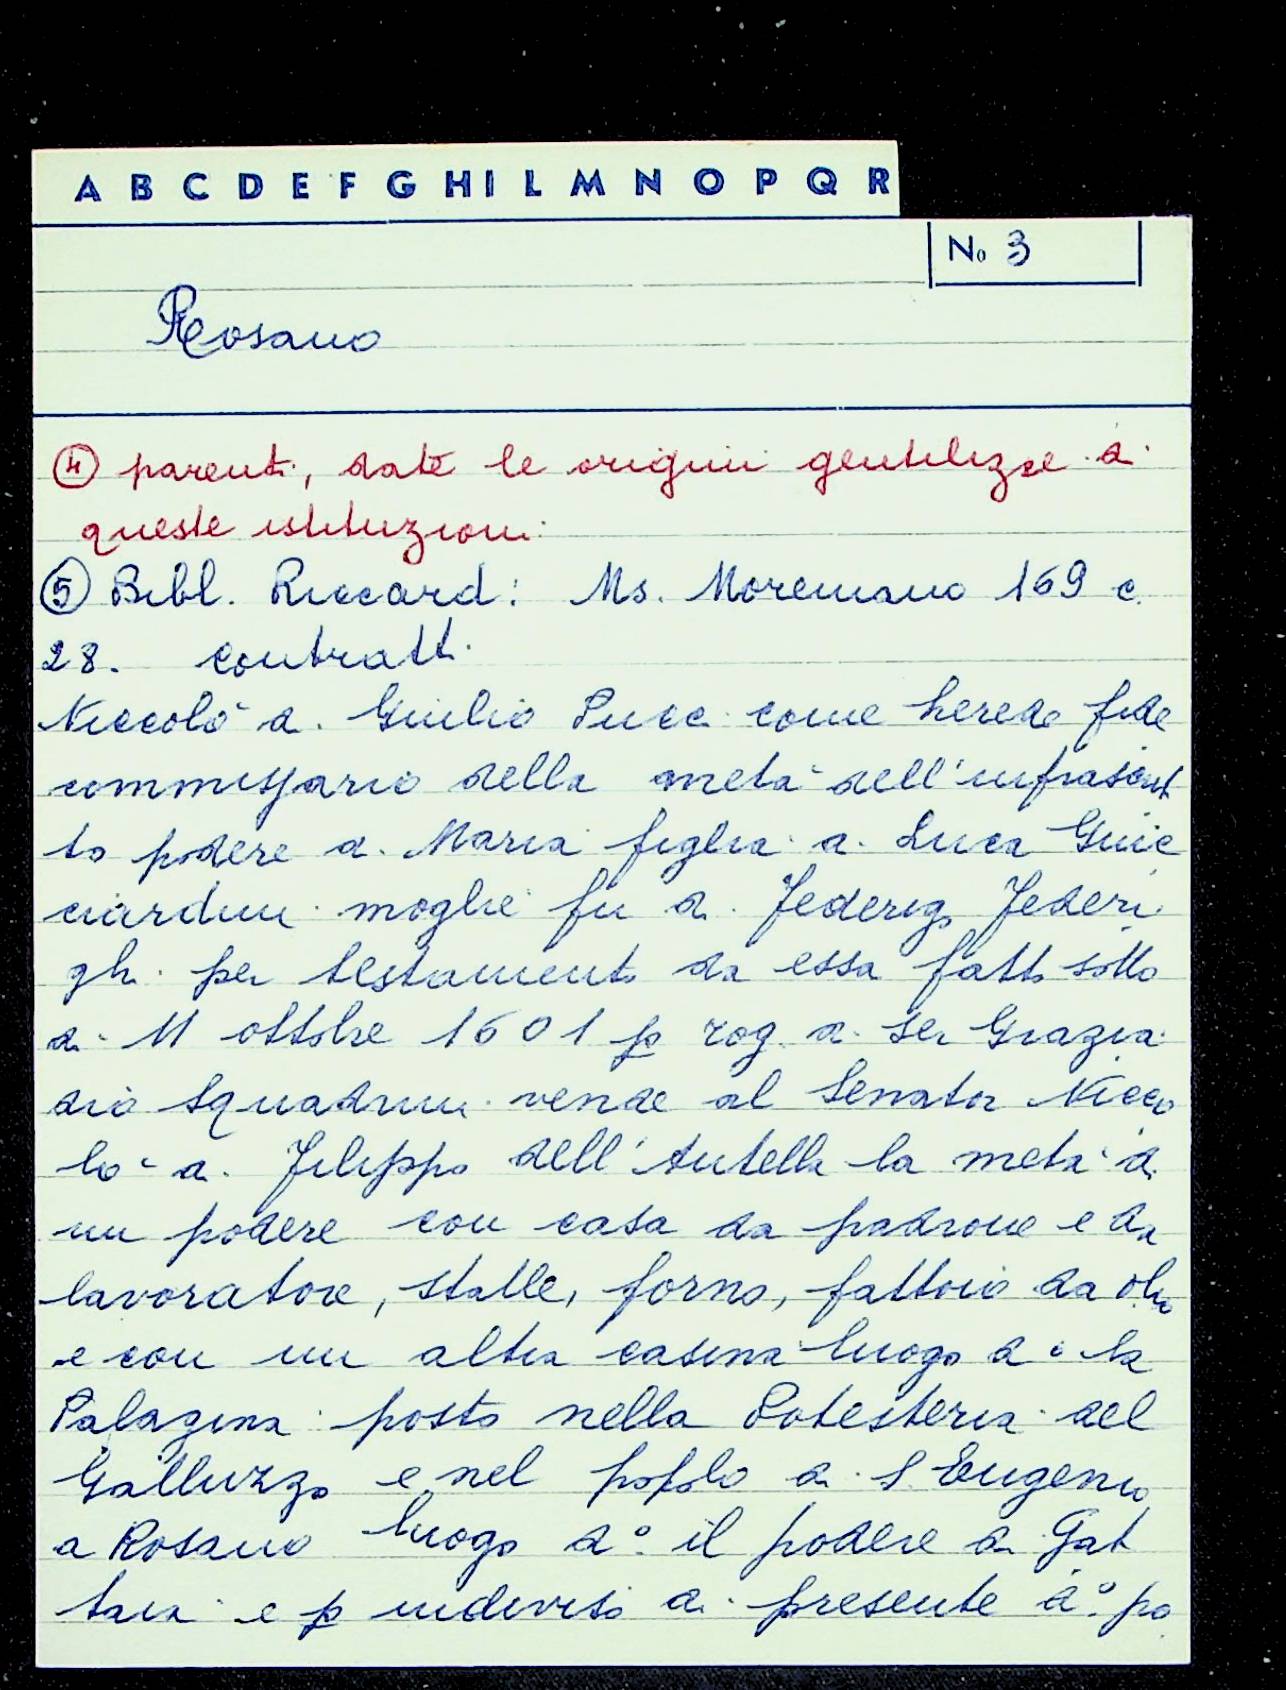 A B C D E F G H I L M N O P Q R
No 3
Rosano
④ parenti, date le origini gentilizie di
queste istituzioni.
⑤ Bibl. Riccard: Ms. Moreniano 169 c.
28. contratti.
Niccolò di Giulio Pucci come herede fide
commissario della metà dell'infrascrit
to podere di Maria figlia di Luca Guic
ciardini moglie fu di Federigo Federi
ghi per testamento da essa fatto sotto
di 11 ottobre 1601 p rog. di Ser Grazia
dio Squadrini vende al Senator Nicco
lo di Filippo dell'Antella la metà di
un podere con casa da padrone e da
lavoratore, stalle, forno, fattoio da olio
e con un altra casina luogo dº la
Palazina posto nella Potesteria del
Galluzzo e nel popolo di S Eugenio
a Rosano luogo dº il podere di Gat
taia e p indiviso di presente dº po